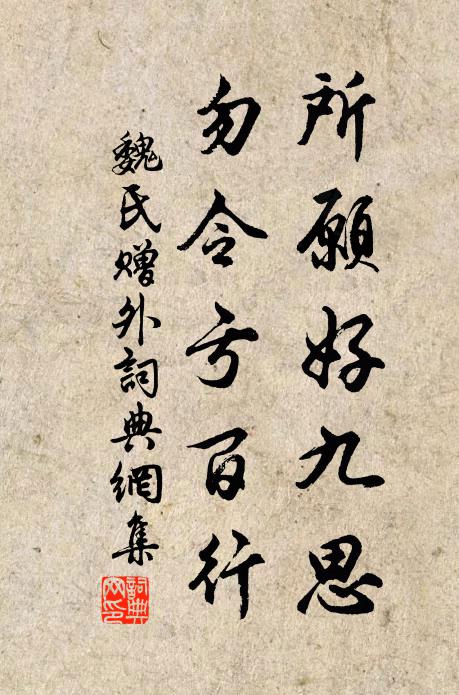 所願好九思
勿令亏百行
魏氏赠外詞典網集
詞典網印